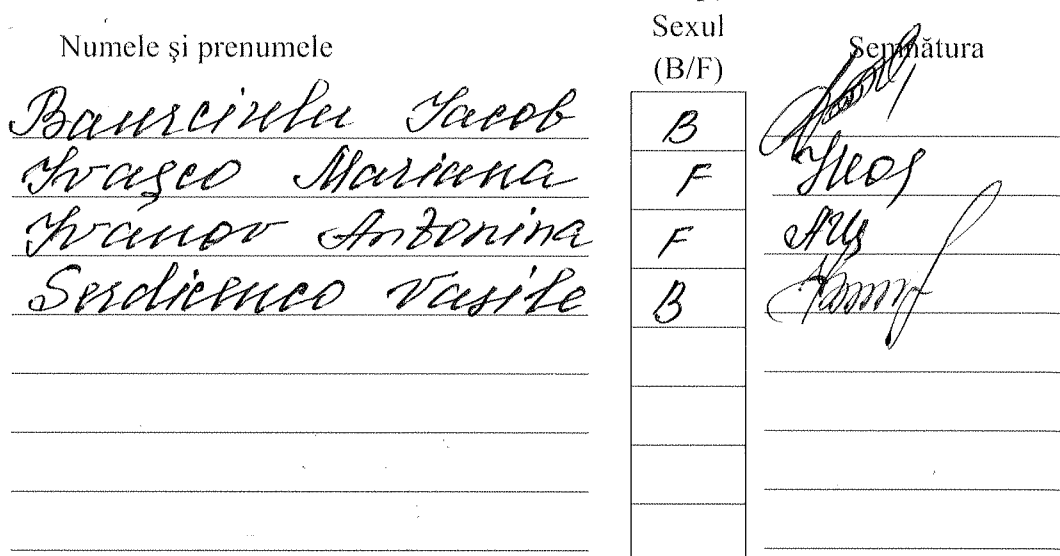 Numele şi prenumele Sexul (B/F) Semnătura
Baurciulu Iacob B
Ivaşco Mariana F
Ivanov Antonina F
Serdicenco Vasile B